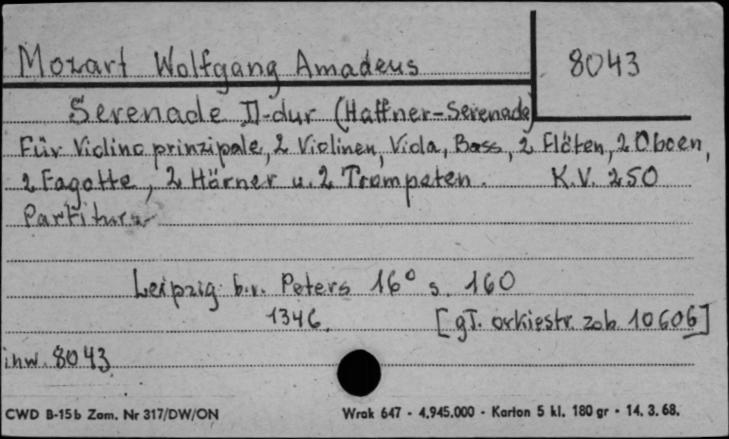 Mozart Wolfgang Amadeus
8043
Serenade D-dur (Haffner-Serenade)
Für Violino prinzipale, 2 Violinen, Viola, Bass, 2 Flöten, 2 Oboen,
2 Fagotte, 2 Hörner u. 2 Trompeten. K.V. 250
Partitura
Leipzig b.r. Peters 16° s. 160
1346.
[gł. orkiestr. zob. 10606]
inw. 8043
CWD B-15b Zam. Nr 317/DW/ON
Wrak 647 - 4.945.000 - Karton 5 kl. 180 gr - 14. 3. 68.